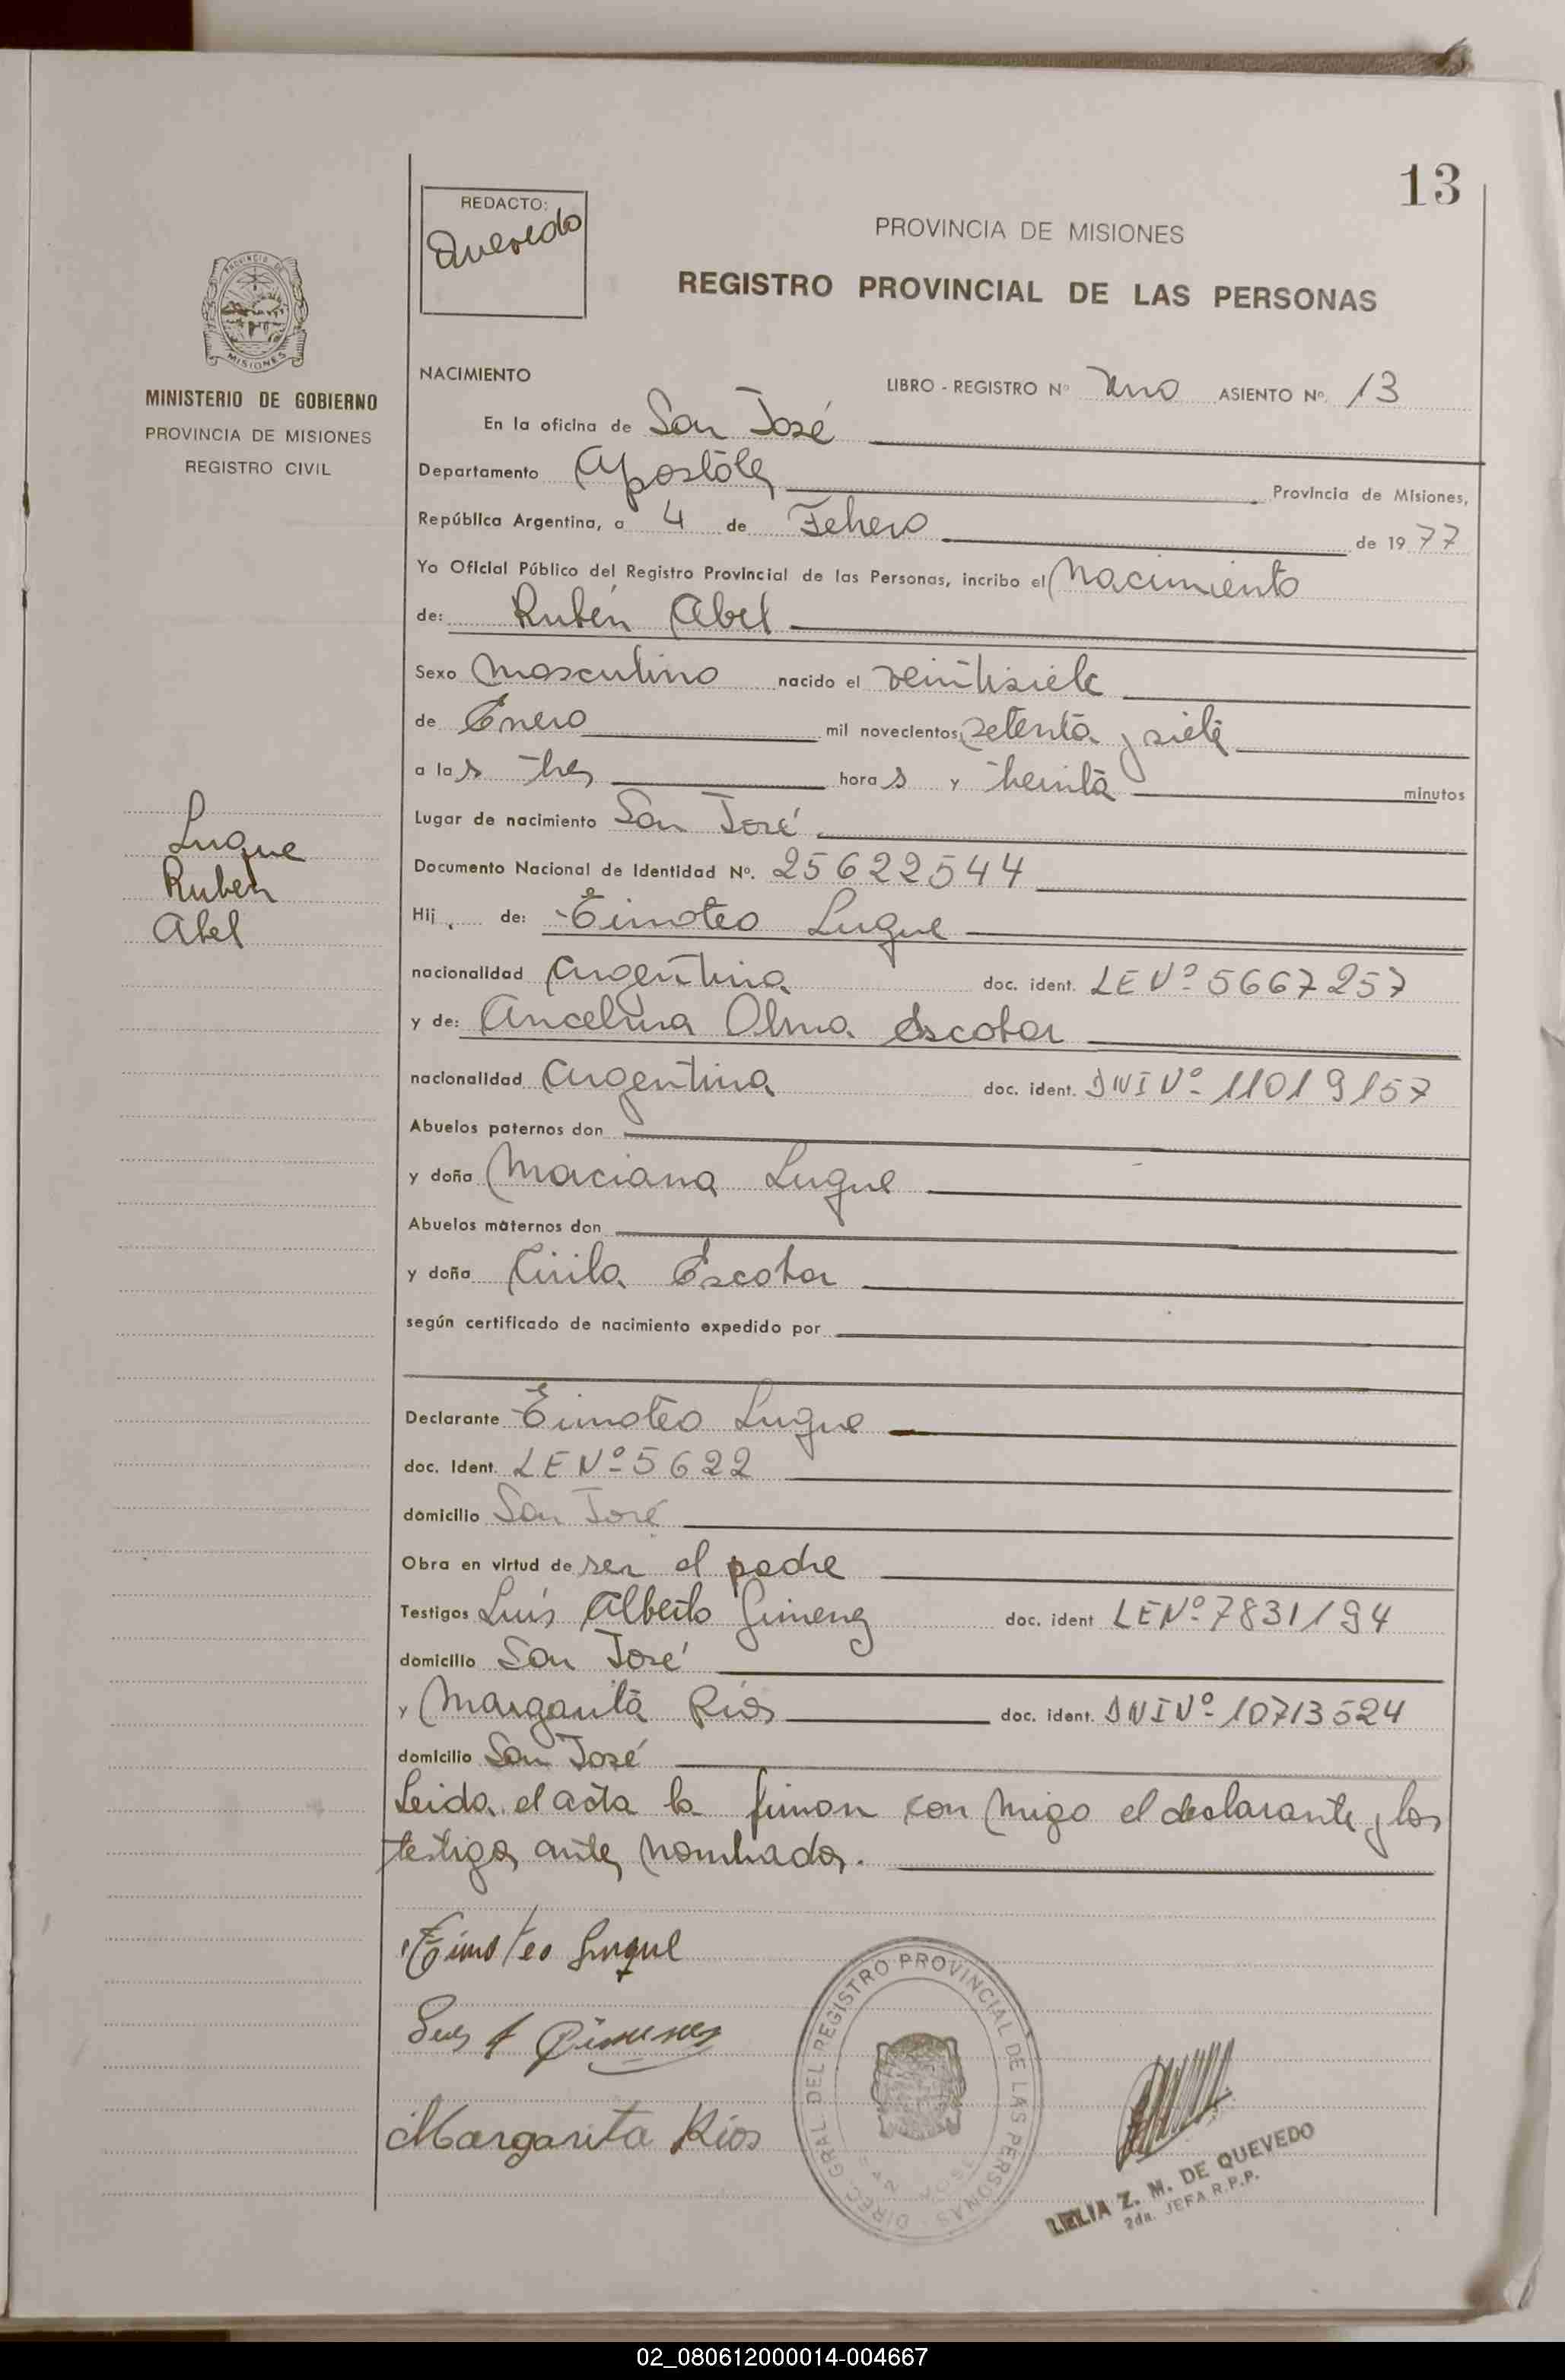 13
REDACTO:
Quevedo
PROVINCIA DE MISIONES
REGISTRO PROVINCIAL DE LAS PERSONAS
PROVINCIA DE
MISIONES
MINISTERIO DE GOBIERNO
PROVINCIA DE MISIONES
REGISTRO CIVIL
NACIMIENTO LIBRO - REGISTRO Nº Uno ASIENTO Nº 13
En la oficina de San José
Departamento Apóstoles Provincia de Misiones,
República Argentina, a 4 de Febrero de 19 77
Yo Oficial Público del Registro Provincial de las Personas, incribo el Nacimiento
de: Rubén Abel
Sexo Masculino nacido el veintisiete
de Enero mil novecientos setenta y siete
a las tres horas y treinta minutos
Lugar de nacimiento San José
Documento Nacional de Identidad Nº. 25622544
Luque
Ruben
Abel
Hij de: Timoteo Luque
nacionalidad Argentina doc. ident. LE Nº 5667257
y de: Ancelma Olma Escobar
nacionalidad Argentina doc. ident. DNI Nº 11019157
Abuelos paternos don
y doña Marciana Luque
Abuelos maternos don
y doña Cirila Escobar
según certificado de nacimiento expedido por
Declarante Timoteo Luque
doc. Ident. LE Nº 5622
domicilio San José
Obra en virtud de ser el padre
Testigos Luis Alberto Gimenez doc. ident LE Nº 7831194
domicilio San José
y Margarita Ríos doc. ident. DNI Nº 10713524
domicilio San José
Leida el acta la firman con migo el declarante y los
testigos antes nombrados.
Timoteo Luque
Luis A Gimenez
Margarita Rios
DIREC. GRAL. DEL REGISTRO PROVINCIAL DE LAS PERSONAS
SAN JOSE
LELIA Z. M. DE QUEVEDO
2da. JEFA R.P.P.
02_080612000014-004667